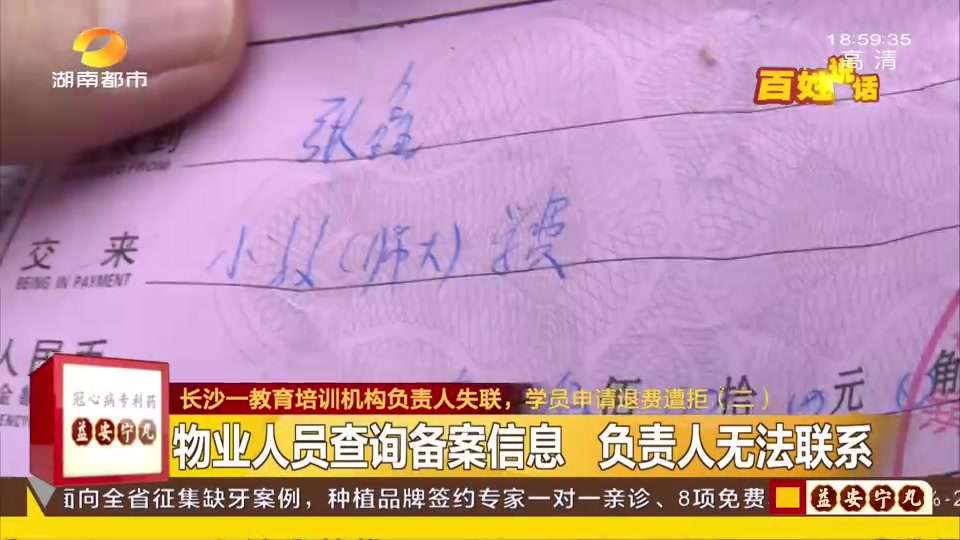 湖南都市
18:59:35
高清
百姓说话
张鑫
交 来
BEING IN PAYMENT
小教(师大) 学费
人民币
拾
元
角
冠心病专利药
益安宁丸
长沙一教育培训机构负责人失联，学员申请退费遭拒（二）
物业人员查询备案信息 负责人无法联系
面向全省征集缺牙案例，种植品牌签约专家一对一亲诊、8项免费
益安宁丸